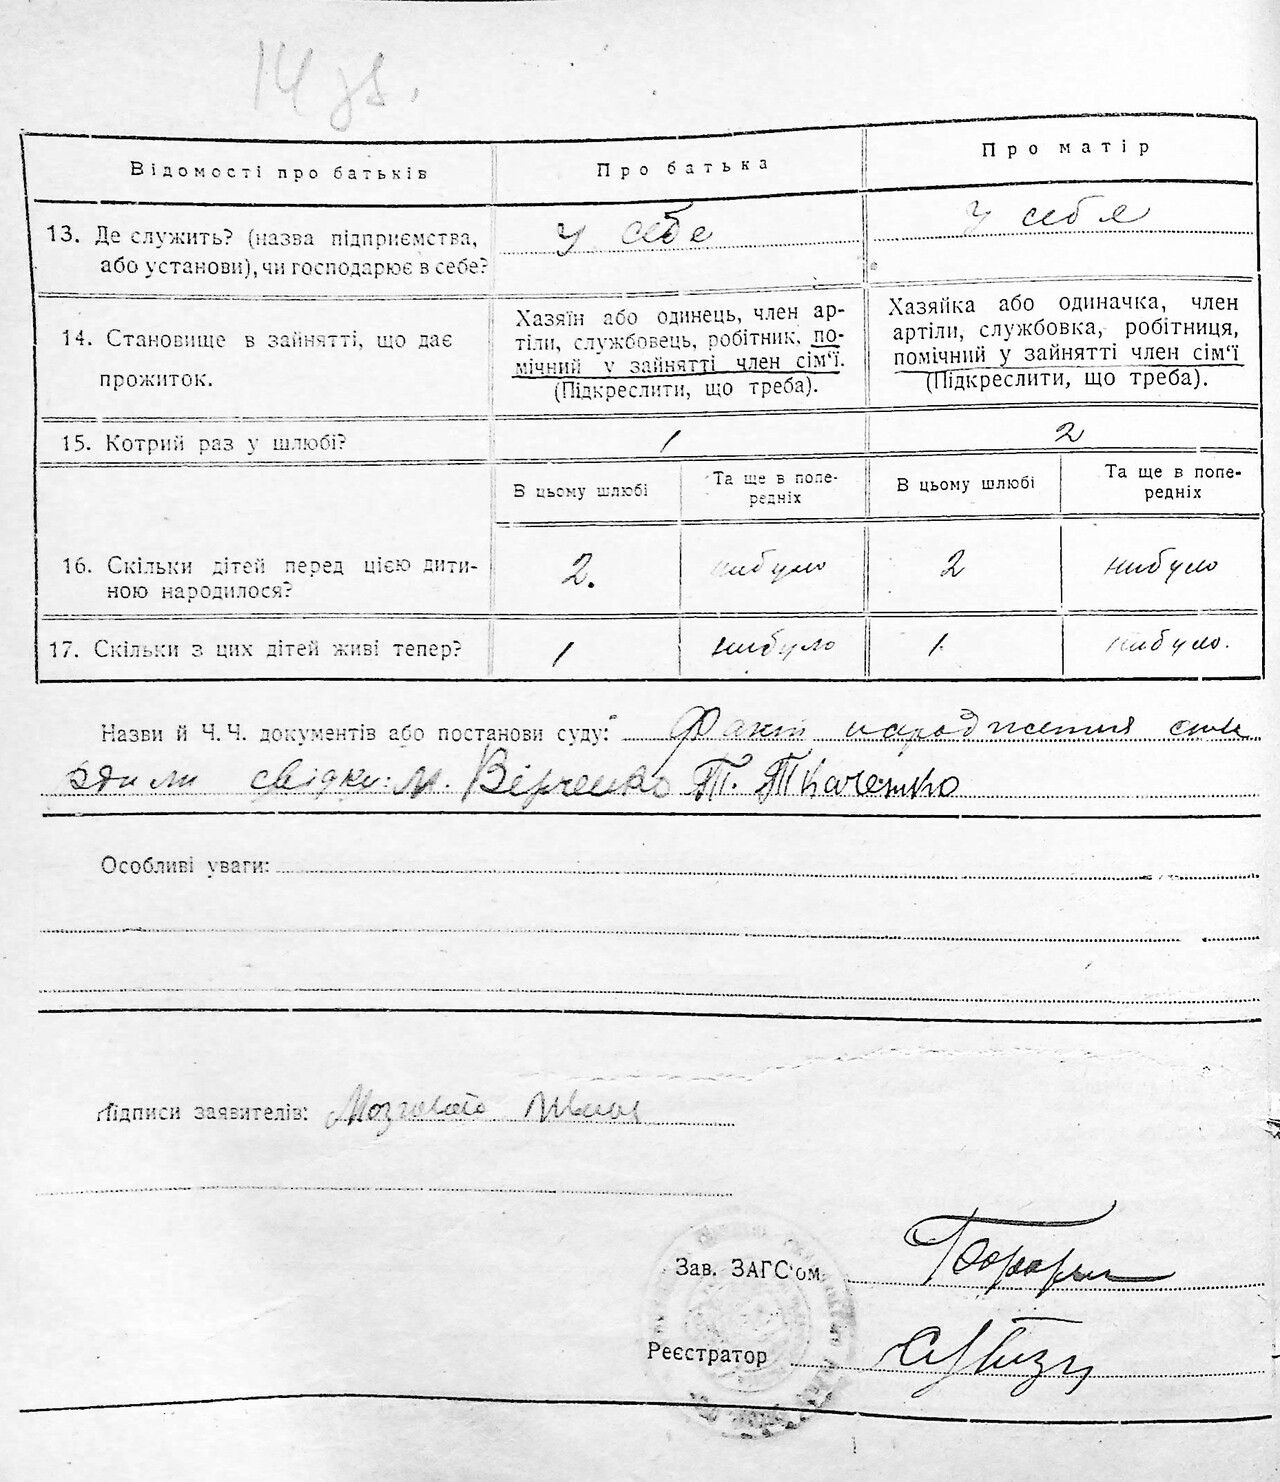 14
Відомості про батьків
Про батька
Про матір
13. Де служить? (назва підприємства,
або установи), чи господарює в себе?
у себе
у себе
14. Становище в зайнятті, що дає
прожиток.
Хазяїн або одинець, член ар-
тіли, службовець, робітник, по-
мічний у зайнятті член сім'ї.
(Підкреслити, що треба).
Хазяйка або одиначка, член
артіли, службовка, робітниця,
помічний у зайнятті член сім'ї
(Підкреслити, що треба).
15. Котрий раз у шлюбі?
1
2
В цьому шлюбі
Та ще в попе-
редніх
В цьому шлюбі
Та ще в попе-
редніх
16. Скільки дітей перед цією дити-
ною народилося?
2.
нибуло
2
нибуло
17. Скільки з цих дітей живі тепер?
1
нибуло
1.
нибуло.
Назви й Ч. Ч. документів або постанови суду: Факт народження
свідки: М. Вірченко Т. Ткаченко
Особливі уваги:
Підписи заявителів:
Зав. ЗАГС'ом
Реєстратор